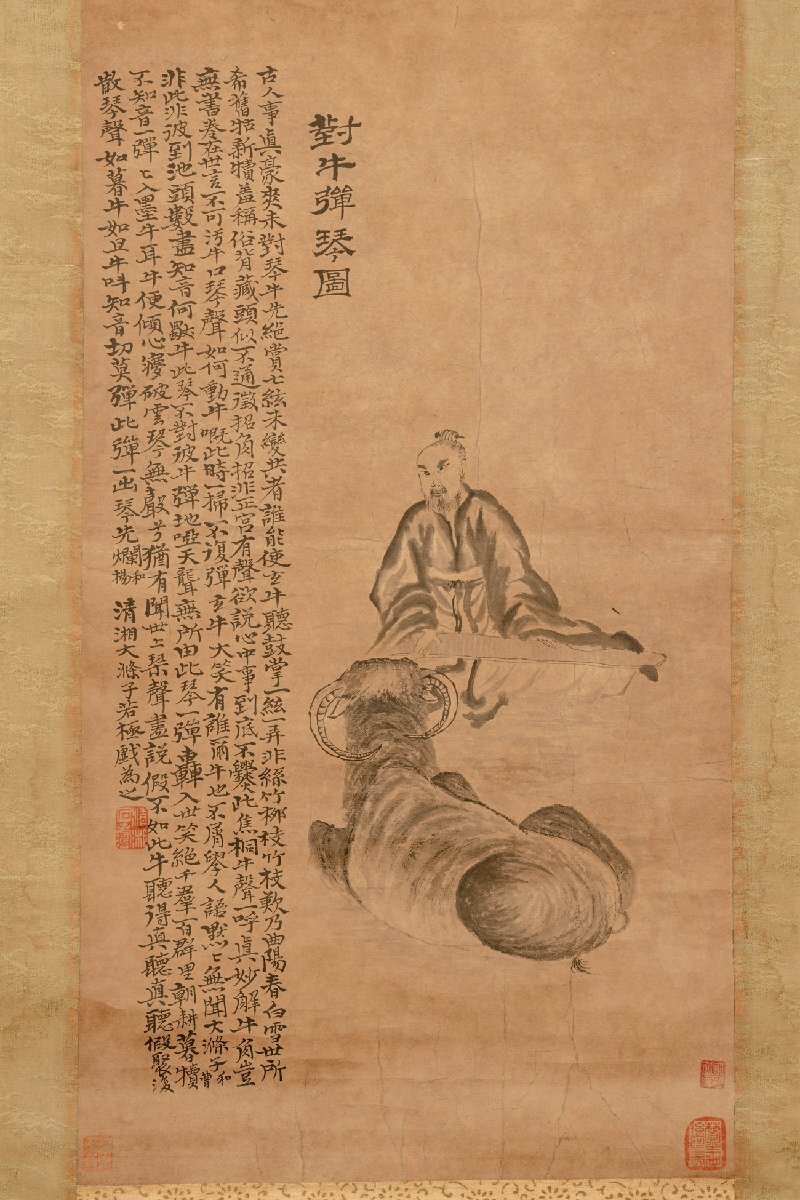 對牛彈琴圖
古人事真豪爽未對琴牛先絕賞七絃未變共者誰能使玄牛聽鼓掌一絃一弄非絲竹柳枝竹枝欸乃曲陽春白雪世所
希舊牯新犢蓋稱俗背藏頭似不通徵招角招非正宮有聲欲說心中事到底不爨此焦桐牛聲一呼真妙解牛角豈
無書卷在世言不可污牛口琴聲如何動牛慨此時一掃不復彈玄牛大笑有誰爾牛也不屑學人語默默無聞大滌子和曹
非此非彼到池頭數盡知音何獸牛此琴不對彼牛彈地啞天聾無所由此琴一彈轟入世笑絕千羣百群里朝耕暮犢
不知音一彈彈入墨牛耳牛便傾心破雲琴無聲兮猶有聞世上琴聲盡說假不如此牛聽得真聽真聽假聚復
散琴聲如暮牛如旦牛叫知音切莫彈此彈一出琴先爛和楊
清湘大滌子若極戲為之